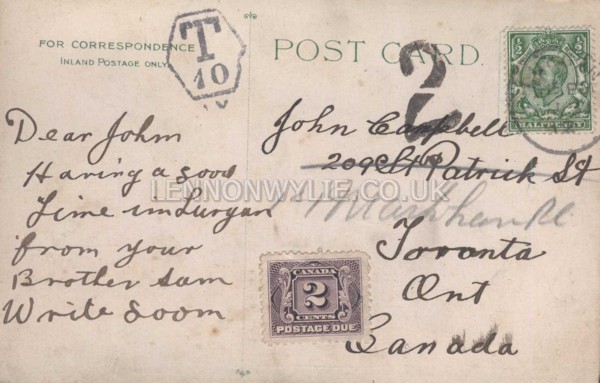 FOR CORRESPONDENCE
INLAND POSTAGE ONLY
T
10
POST CARD.
2
HALFPENNY
Dear John
Having a good
time in Lurgan
from your
Brother Sam
Write Soon
John Campbell
209 St Patrick St
Markham
Toronta
Ont
Canada
LENNONWYLIE.CO.UK
CANADA
2
CENTS
POSTAGE DUE